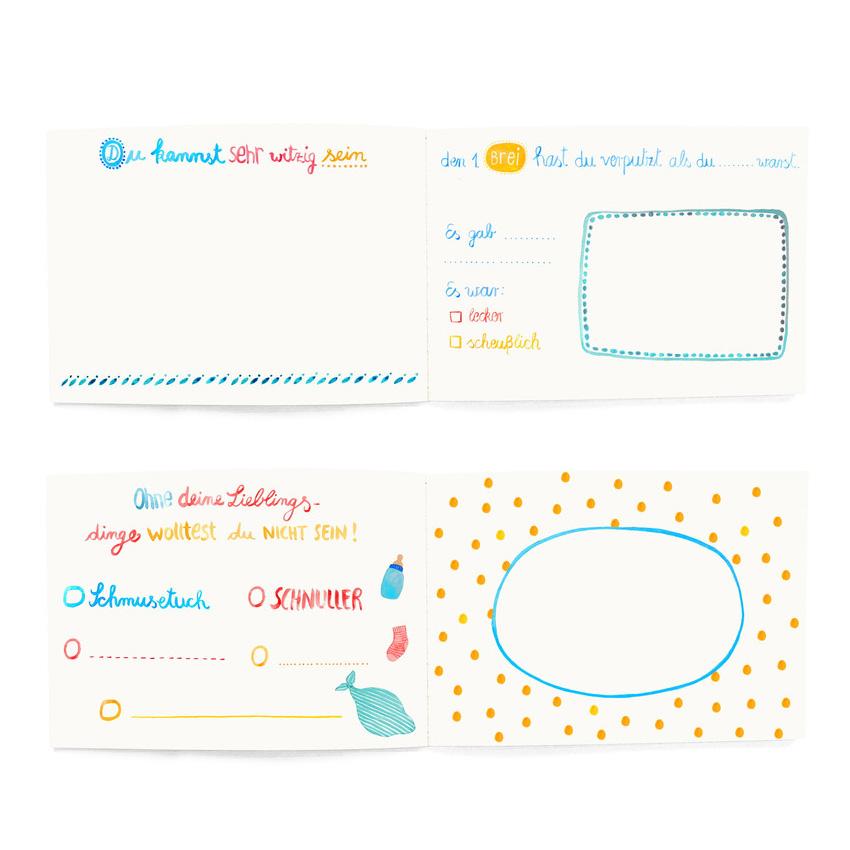 Du kannst sehr witzig sein
den 1 Brei hast du verputzt als du ........ warst.
Es gab
Es war:
lecker
scheußlich
Ohne deine Lieblings-
dinge wolltest du NICHT SEIN!
Schmusetuch SCHNULLER